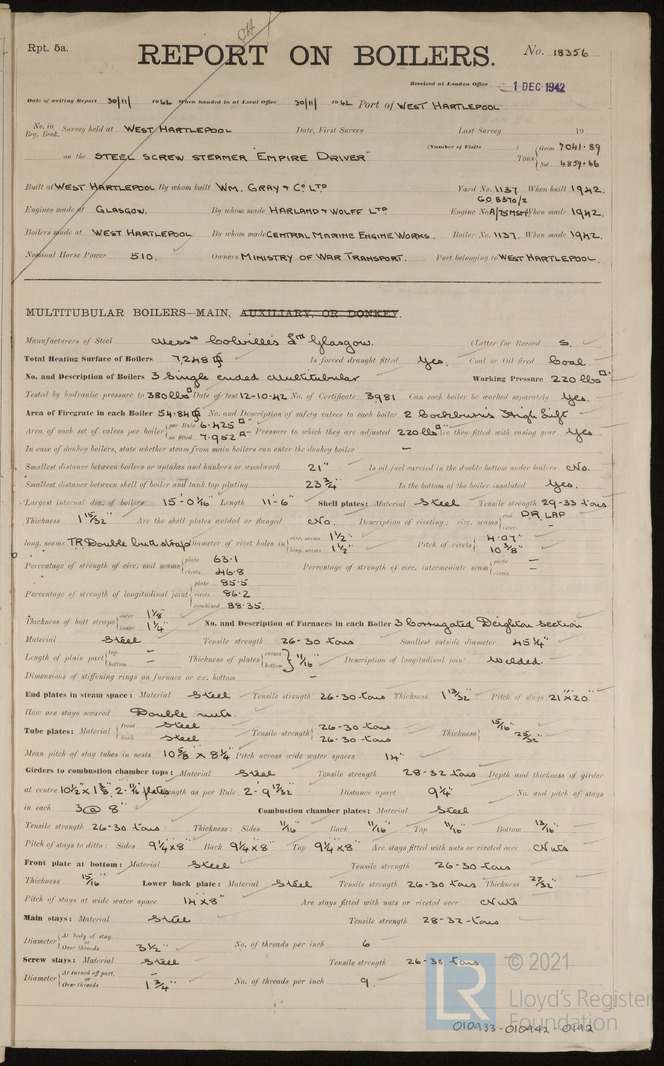 Rpt. 5a.
REPORT ON BOILERS.
No. 18356
Received at London Office 1 DEC 1942
Date of writing Report 30/11/ 1942 When handed in at Local Office 30/11/ 1942 Port of WEST HARTLEPOOL
No. in Reg. Book. Survey held at WEST HARTLEPOOL Date, First Survey Last Survey 19
(Number of Visits )
on the STEEL SCREW STEAMER "EMPIRE DRIVER" Tons Gross 7041.89 Net 4859.66
Built at WEST HARTLEPOOL By whom built WM. GRAY & CO LTD Yard No. 1137 When built 1942.
Engines made at GLASGOW. By whom made HARLAND & WOLFF LTD Engine No. When made 1942.
Boilers made at WEST HARTLEPOOL By whom made CENTRAL MARINE ENGINE WORKS. Boiler No. 1137. When made 1942.
Nominal Horse Power 510. Owners MINISTRY OF WAR TRANSPORT. Port belonging to WEST HARTLEPOOL.
MULTITUBULAR BOILERS—MAIN, AUXILIARY, OR DONKEY.
Manufacturers of Steel Messrs Colville's Ltd Glasgow. (Letter for Record S.
Total Heating Surface of Boilers 7,248 Is forced draught fitted Yes. Coal or Oil fired Coal.
No. and Description of Boilers 3 Single ended Multitubular Working Pressure 220 lbs
Tested by hydraulic pressure to 380 lbs Date of test 12-10-42 No. of Certificate 3981 Can each boiler be worked separately Yes.
Area of Firegrate in each Boiler 54.84 No. and Description of safety valves to each boiler 2 Cockburn's High Lift
Area of each set of valves per boiler per Rule 6.425 as fitted 7.952 Pressure to which they are adjusted 220 lbs Are they fitted with easing gear Yes
In case of donkey boilers, state whether steam from main boilers can enter the donkey boiler —
Smallest distance between boilers or uptakes and bunkers or woodwork 21" Is oil fuel carried in the double bottom under boilers No.
Smallest distance between shell of boiler and tank top plating 23 3/4" Is the bottom of the boiler insulated Yes.
Largest internal dia. of boilers 15'-0 1/16" Length 11'-6" Shell plates: Material Steel Tensile strength 29-33 tons
Thickness 1 15/32" Are the shell plates welded or flanged No. Description of riveting: circ. seams end D.R. LAP inter. —
long. seams T.R. Double butt strap Diameter of rivet holes in circ. seams 1 1/2" long. seams 1 1/2" Pitch of rivets 4.07" 10 3/8"
Percentage of strength of circ. end seams plate 63.1 rivets 46.8 Percentage of strength of circ. intermediate seam plate — rivets —
Percentage of strength of longitudinal joint plate 85.5 rivets 86.2 combined 88.35.
Thickness of butt straps outer 1 1/8" inner 1 1/4" No. and Description of Furnaces in each Boiler 3 Corrugated Deighton Section
Material Steel Tensile strength 26-30 tons Smallest outside diameter 45 1/4"
Length of plain part top — bottom — Thickness of plates crown bottom 11/16" Description of longitudinal joint Welded.
Dimensions of stiffening rings on furnace or c.c. bottom —
End plates in steam space: Material Steel Tensile strength 26-30 tons Thickness 1 13/32" Pitch of stays 21"x20"
How are stays secured Double nuts.
Tube plates: Material front Steel back Steel Tensile strength 26-30 tons 26-30 tons Thickness 15/16" 25/32"
Mean pitch of stay tubes in nests 10 5/8" x 8 1/4" Pitch across wide water spaces 14"
Girders to combustion chamber tops: Material Steel Tensile strength 28-32 tons Depth and thickness of girder
at centre Length as per Rule 2'-9 17/32" Distance apart 9 1/4" No. and pitch of stays
in each 3 @ 8" Combustion chamber plates: Material Steel
Tensile strength 26-30 tons Thickness: Sides 11/16" Back 11/16" Top 11/16" Bottom 13/16"
Pitch of stays to ditto: Sides 9 1/4"x8" Back 9 1/4"x8" Top 9 1/4"x8" Are stays fitted with nuts or riveted over Nuts
Front plate at bottom: Material Steel Tensile strength 26-30 tons
Thickness 15/16" Lower back plate: Material Steel Tensile strength 26-30 tons Thickness 27/32"
Pitch of stays at wide water space 14"x8" Are stays fitted with nuts or riveted over Nuts
Main stays: Material Steel Tensile strength 28-32 tons
Diameter At body of stay, or Over threads 3 1/2" No. of threads per inch 6
Screw stays: Material Steel Tensile strength 26-30 tons
Diameter At turned off part, or Over threads — 1 3/4" No. of threads per inch 9.
© 2021
LR Lloyd's Register Foundation
010933-010942-0192